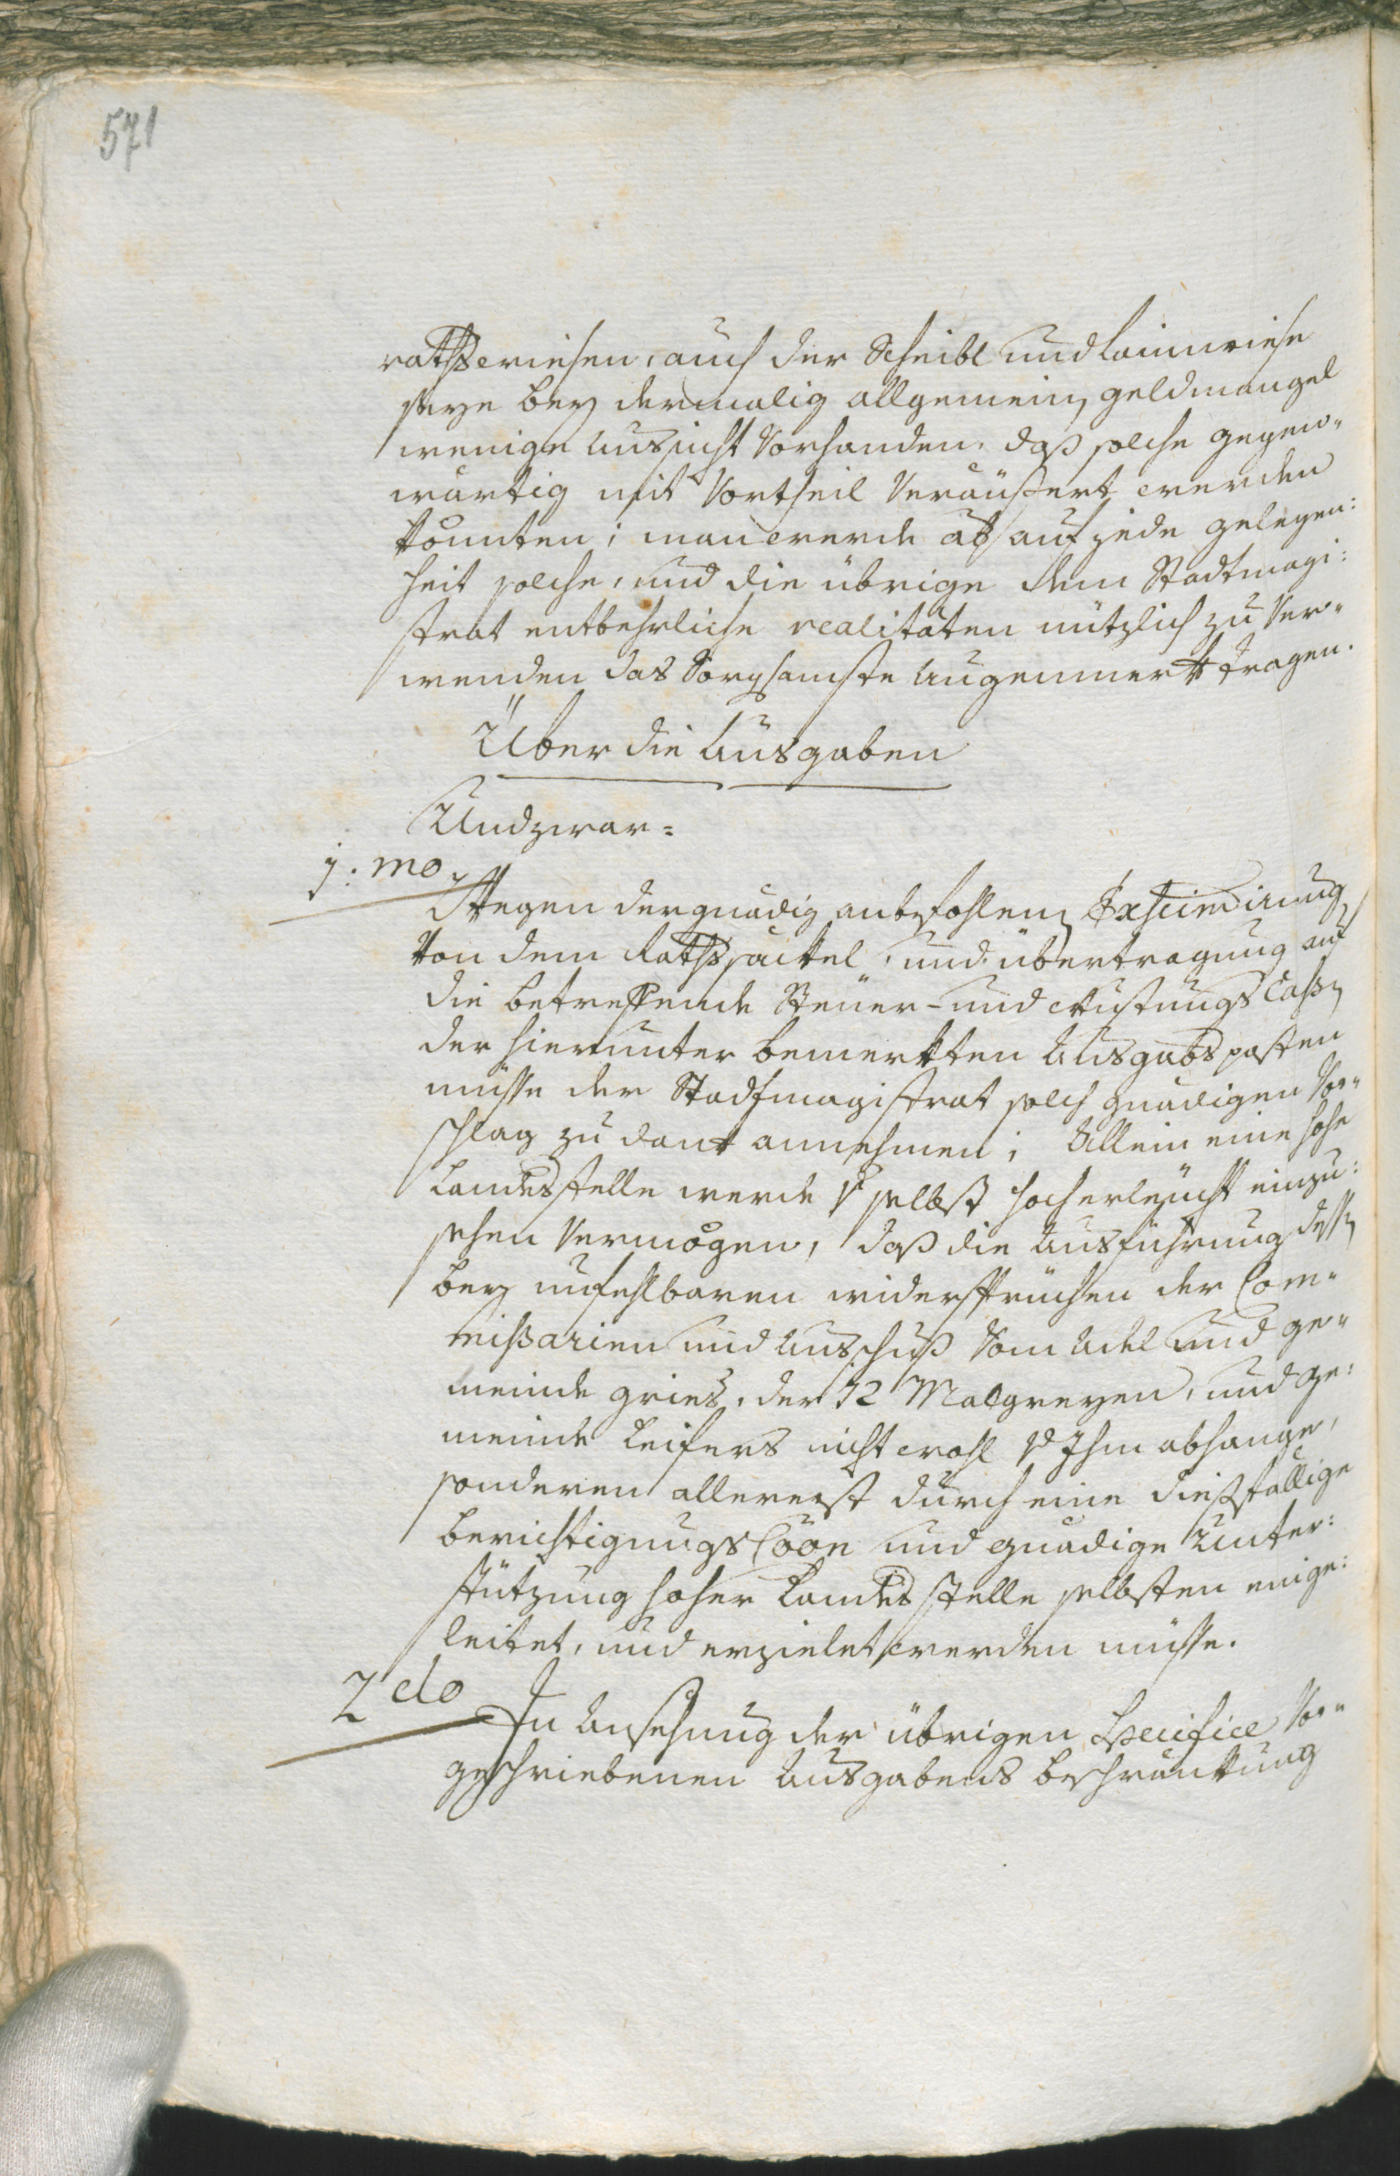 571
rathswiesen, auch der Scheibl und Lainwiese
seye bey dermalig allgemein geldmangel
wenige Aussicht Vorhanden, daß solche gegen-
wärtig mit Vortheil Veräußert werden
könnten; man werde ab auf jede gelegen:
heit solche, und die übrige dem Stadtmagi:
strat entbehrliche realitäten nützlich zu Ver-
wenden das Sorgsamste Augenmerk tragen.
Über die Ausgaben
Und zwar =
1:mo
Wegen der gnädig anbefohlen Exscindirung
Von dem Rathssäckel, und übertragung auf
die betreffende Steuer- und Rustungs Cassen
der hierunter bemerkten Ausgabsposten
müsse der Stadtmagistrat solch gnädigen Vor-
schlag zu dank annehmen; Allein eine hohe
Landesstelle werde selbst hocherleucht einzu:
sehen Vermögen, daß die Ausführung dessen
bey unfehlbaren widersprüchen der Com-
missarien und Ausschuß Vom Adel und ge-
meinde gries, der 12 Malgreyen, und ge:
meinde Leifers nicht wohl Ihm abhange,
sonderen allererst durch eine dießfällige
berichtigungs Cöon und gnädige Unter:
stützung hoher Landesstelle selbsten einge:
leitet, und erzielet werden müsse.
2do
In Ansehung der übrigen Specifice Vor-
geschriebenen Ausgabens beschränkung